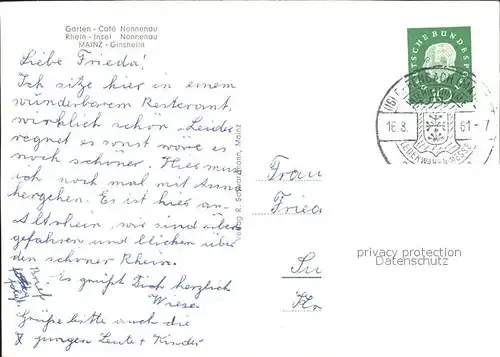 Garten - Café Nonnenau
Rhein - Insel Nonnenau
MAINZ - Ginsheim
Liebe Frieda!
Ich sitze hier in einem
wunderbarem Resterant,
wirklich schön. Leider
regnet es sonst wäre es
noch schöner. Hier muss
ich noch mal mit Anna
hergehen. Es ist hier am
Altrhein, wir sind über
gefahren und blicken über
den schönen Rhein.
Es grüßt Dich herzlich
Wiese.
Grüße bitte auch die
jungen Leute + Kinder
Brief
Verlag R. Mainz
DEUTSCHE BUNDESPOST
10
16.8. 61-7
LEDERWARENMESSE
Frau
Frie
privacy protection
Datenschutz